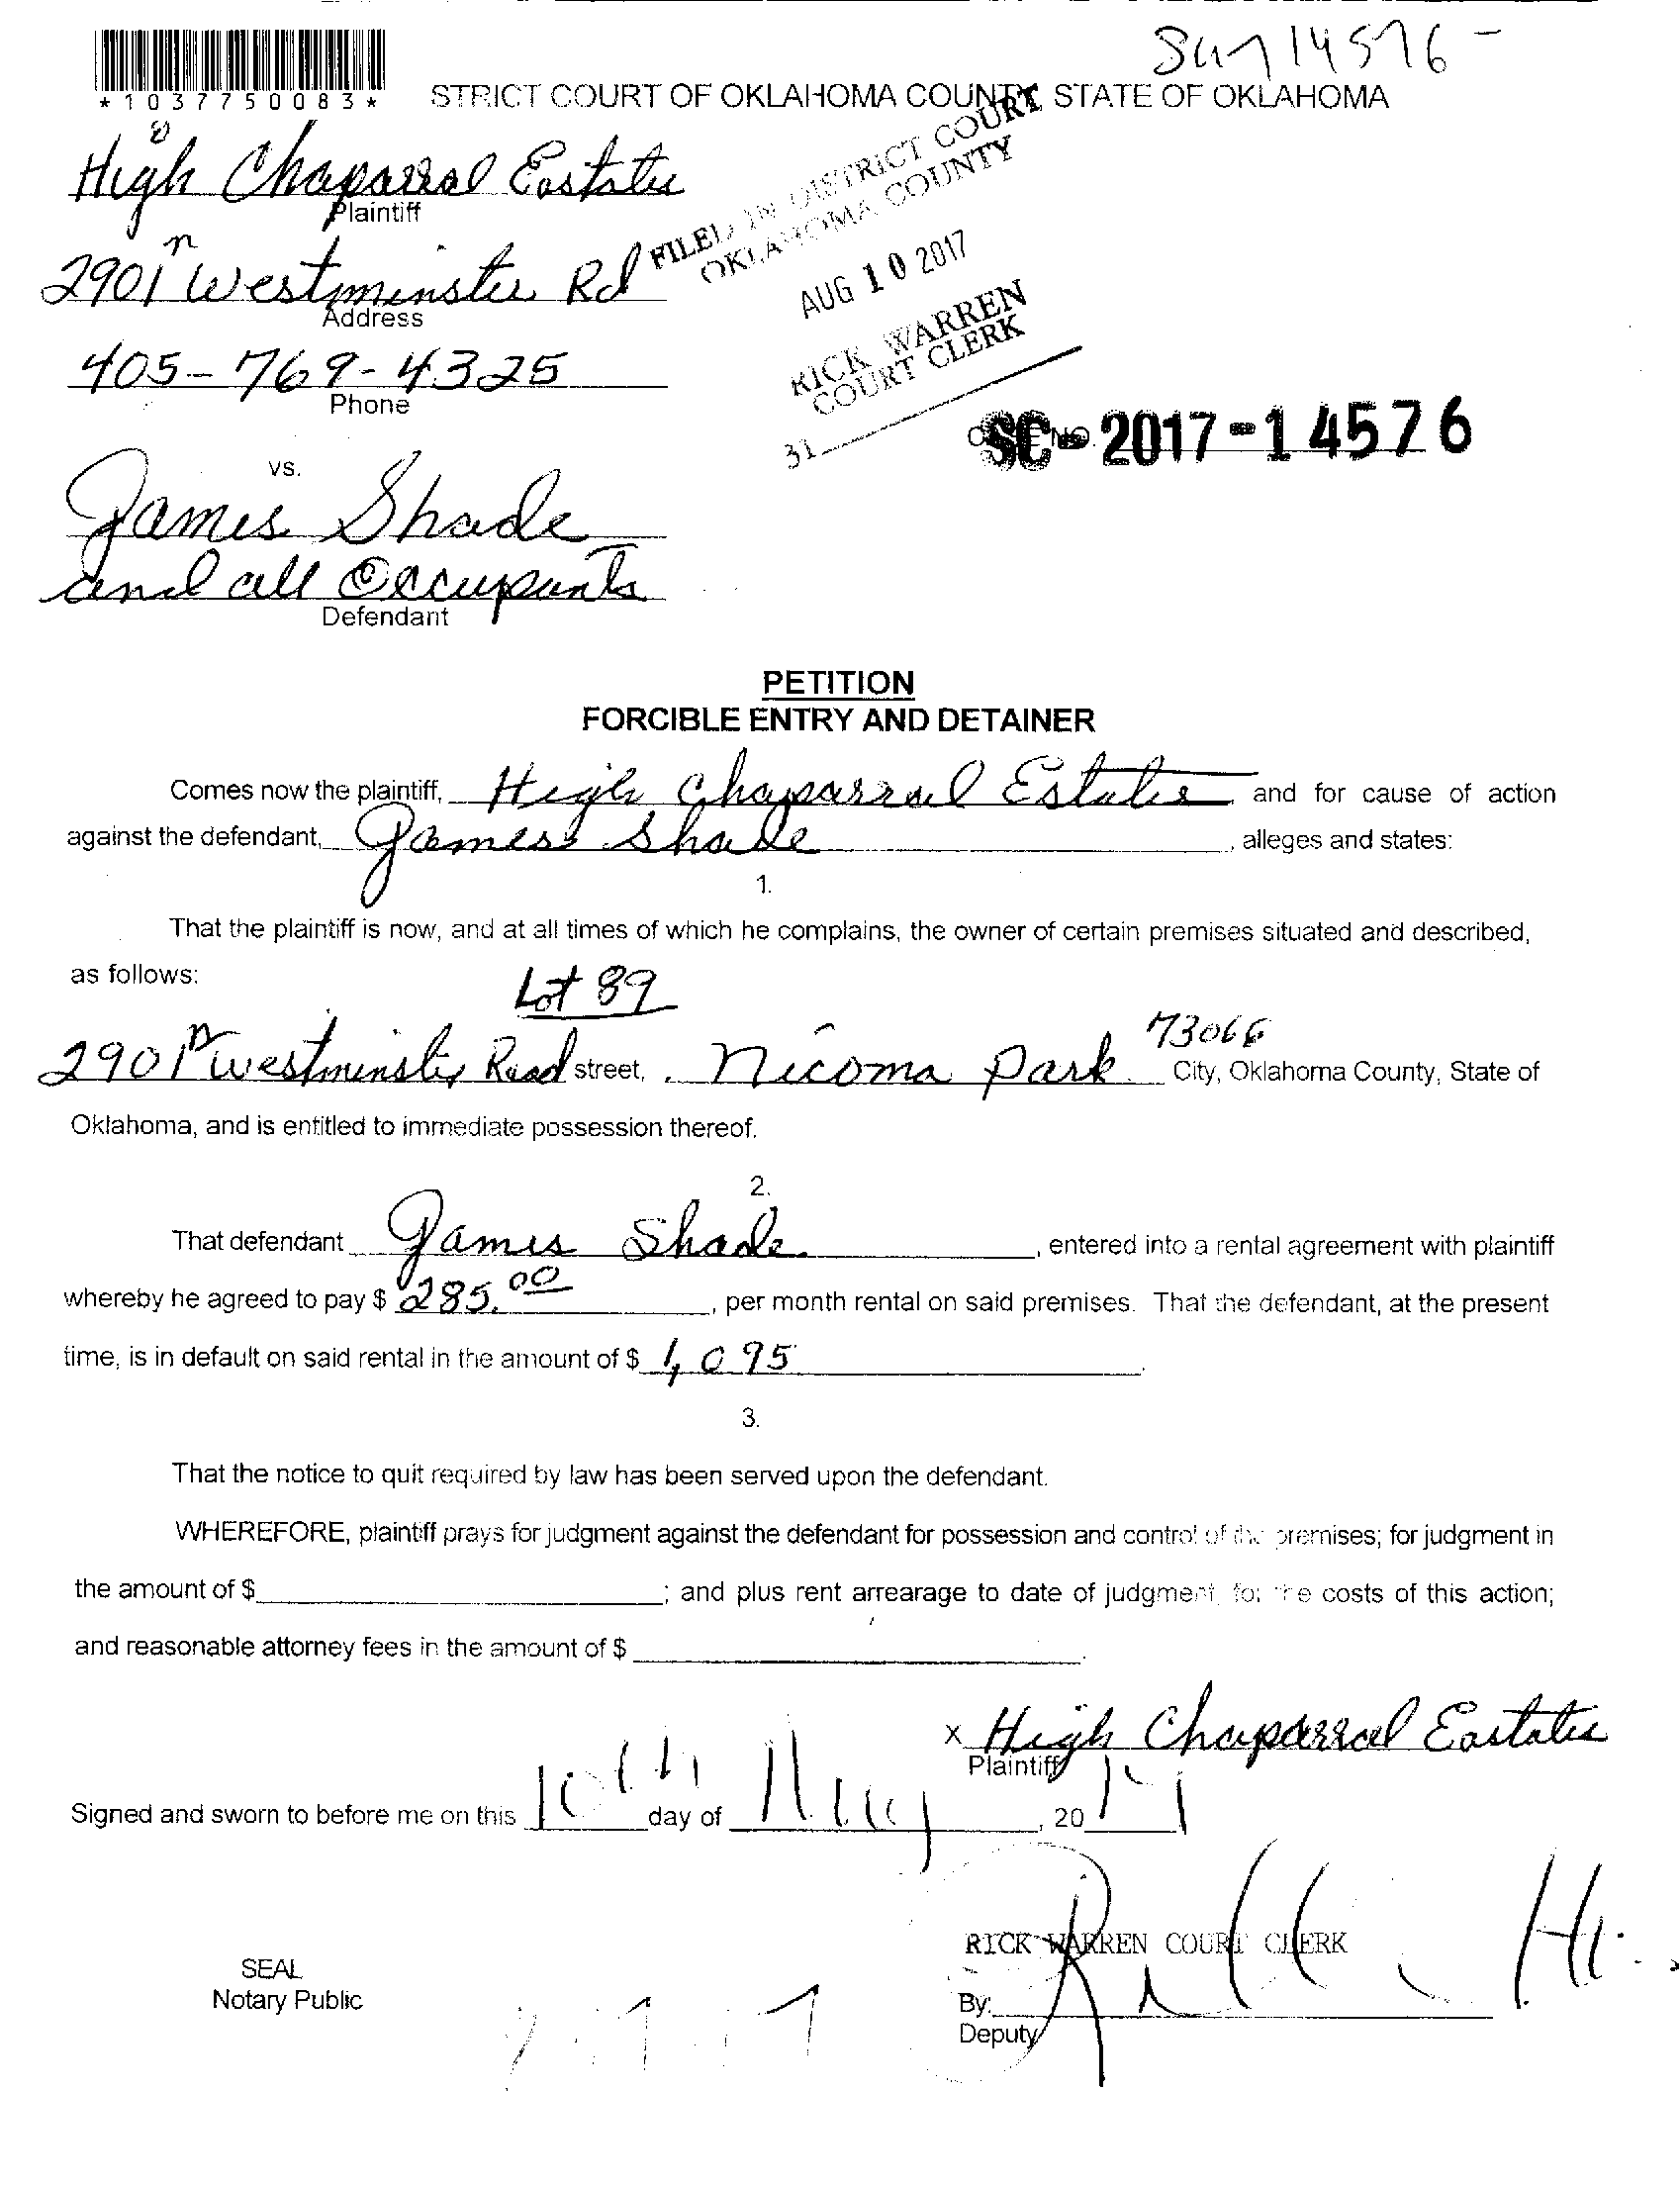 *1037750083*
STRICT COURT OF OKLAHOMA COUNTY, STATE OF OKLAHOMA
High Chaparral Estates
Plaintiff
2901 n Westminster Rd
Address
405-769-4325
Phone
FILED IN DISTRICT COURT
OKLAHOMA COUNTY
AUG 10 2017
RICK WARREN
COURT CLERK
31
SC-2017-14576
vs.
James Shade
and all Occupants
Defendant
PETITION
FORCIBLE ENTRY AND DETAINER
Comes now the plaintiff, High Chaparral Estates and for cause of action
against the defendant, James Shade, alleges and states:
1.
That the plaintiff is now, and at all times of which he complains, the owner of certain premises situated and described,
as follows:
Lot 89
2901 n Westminster Road street, Nicoma Park 73066 City, Oklahoma County, State of
Oklahoma, and is entitled to immediate possession thereof.
2.
That defendant James Shade, entered into a rental agreement with plaintiff
whereby he agreed to pay $ 285.00, per month rental on said premises. That the defendant, at the present
time, is in default on said rental in the amount of $ 1,095.
3.
That the notice to quit required by law has been served upon the defendant.
WHEREFORE, plaintiff prays for judgment against the defendant for possession and control of the premises; for judgment in
the amount of $ ; and plus rent arrearage to date of judgment, for the costs of this action;
and reasonable attorney fees in the amount of $ .
x High Chaparral Estates
Plaintiff
Signed and sworn to before me on this 10th day of Aug, 2017
RICK WARREN COURT CLERK
SEAL
Notary Public
By:
Deputy